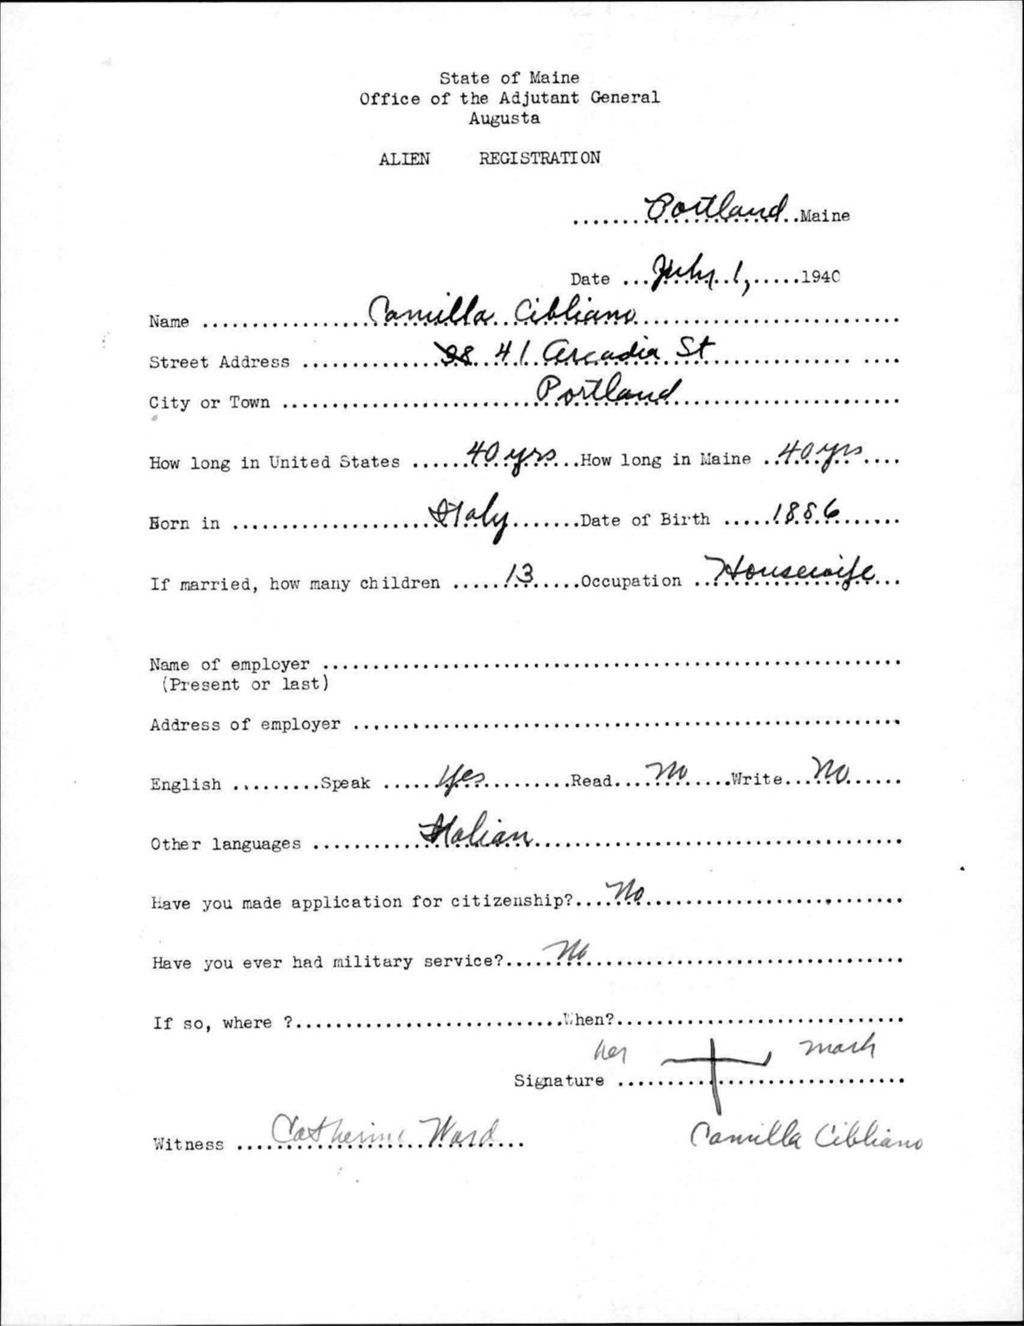 State of Maine
Office of the Adjutant General
Augusta
ALIEN REGISTRATION
.......Portland..Maine
Date ...July 1,.....1940
Name .................Camilla Cibliano...........................
Street Address ..............41 Arcadia St................... ....
City or Town .........................Portland.......................
How long in United States ......40 yrs...How long in Maine ..40 yrs....
Born in ....................Italy.......Date of Birth .....1886.......
If married, how many children .....13.....Occupation ..Housewife...
Name of employer ..........................................................
(Present or last)
Address of employer .......................................................
English .........Speak .....Yes...........Read....No.....Write...No......
Other languages ...........Italian.....................................
Have you made application for citizenship?....No..........................
Have you ever had military service?.....No................................
If so, where ?...........................When?.............................
her mark
Signature .............................
Witness ....Catherine Ward...
Camilla Cibliano